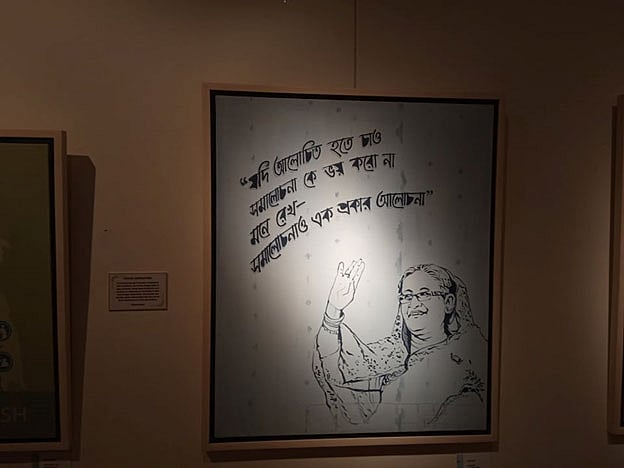 “যদি আলোচিত হতে চাও
সমালোচনা কে ভয় করো না
মনে রেখ-
সমালোচনাও এক প্রকার আলোচনা”
SH